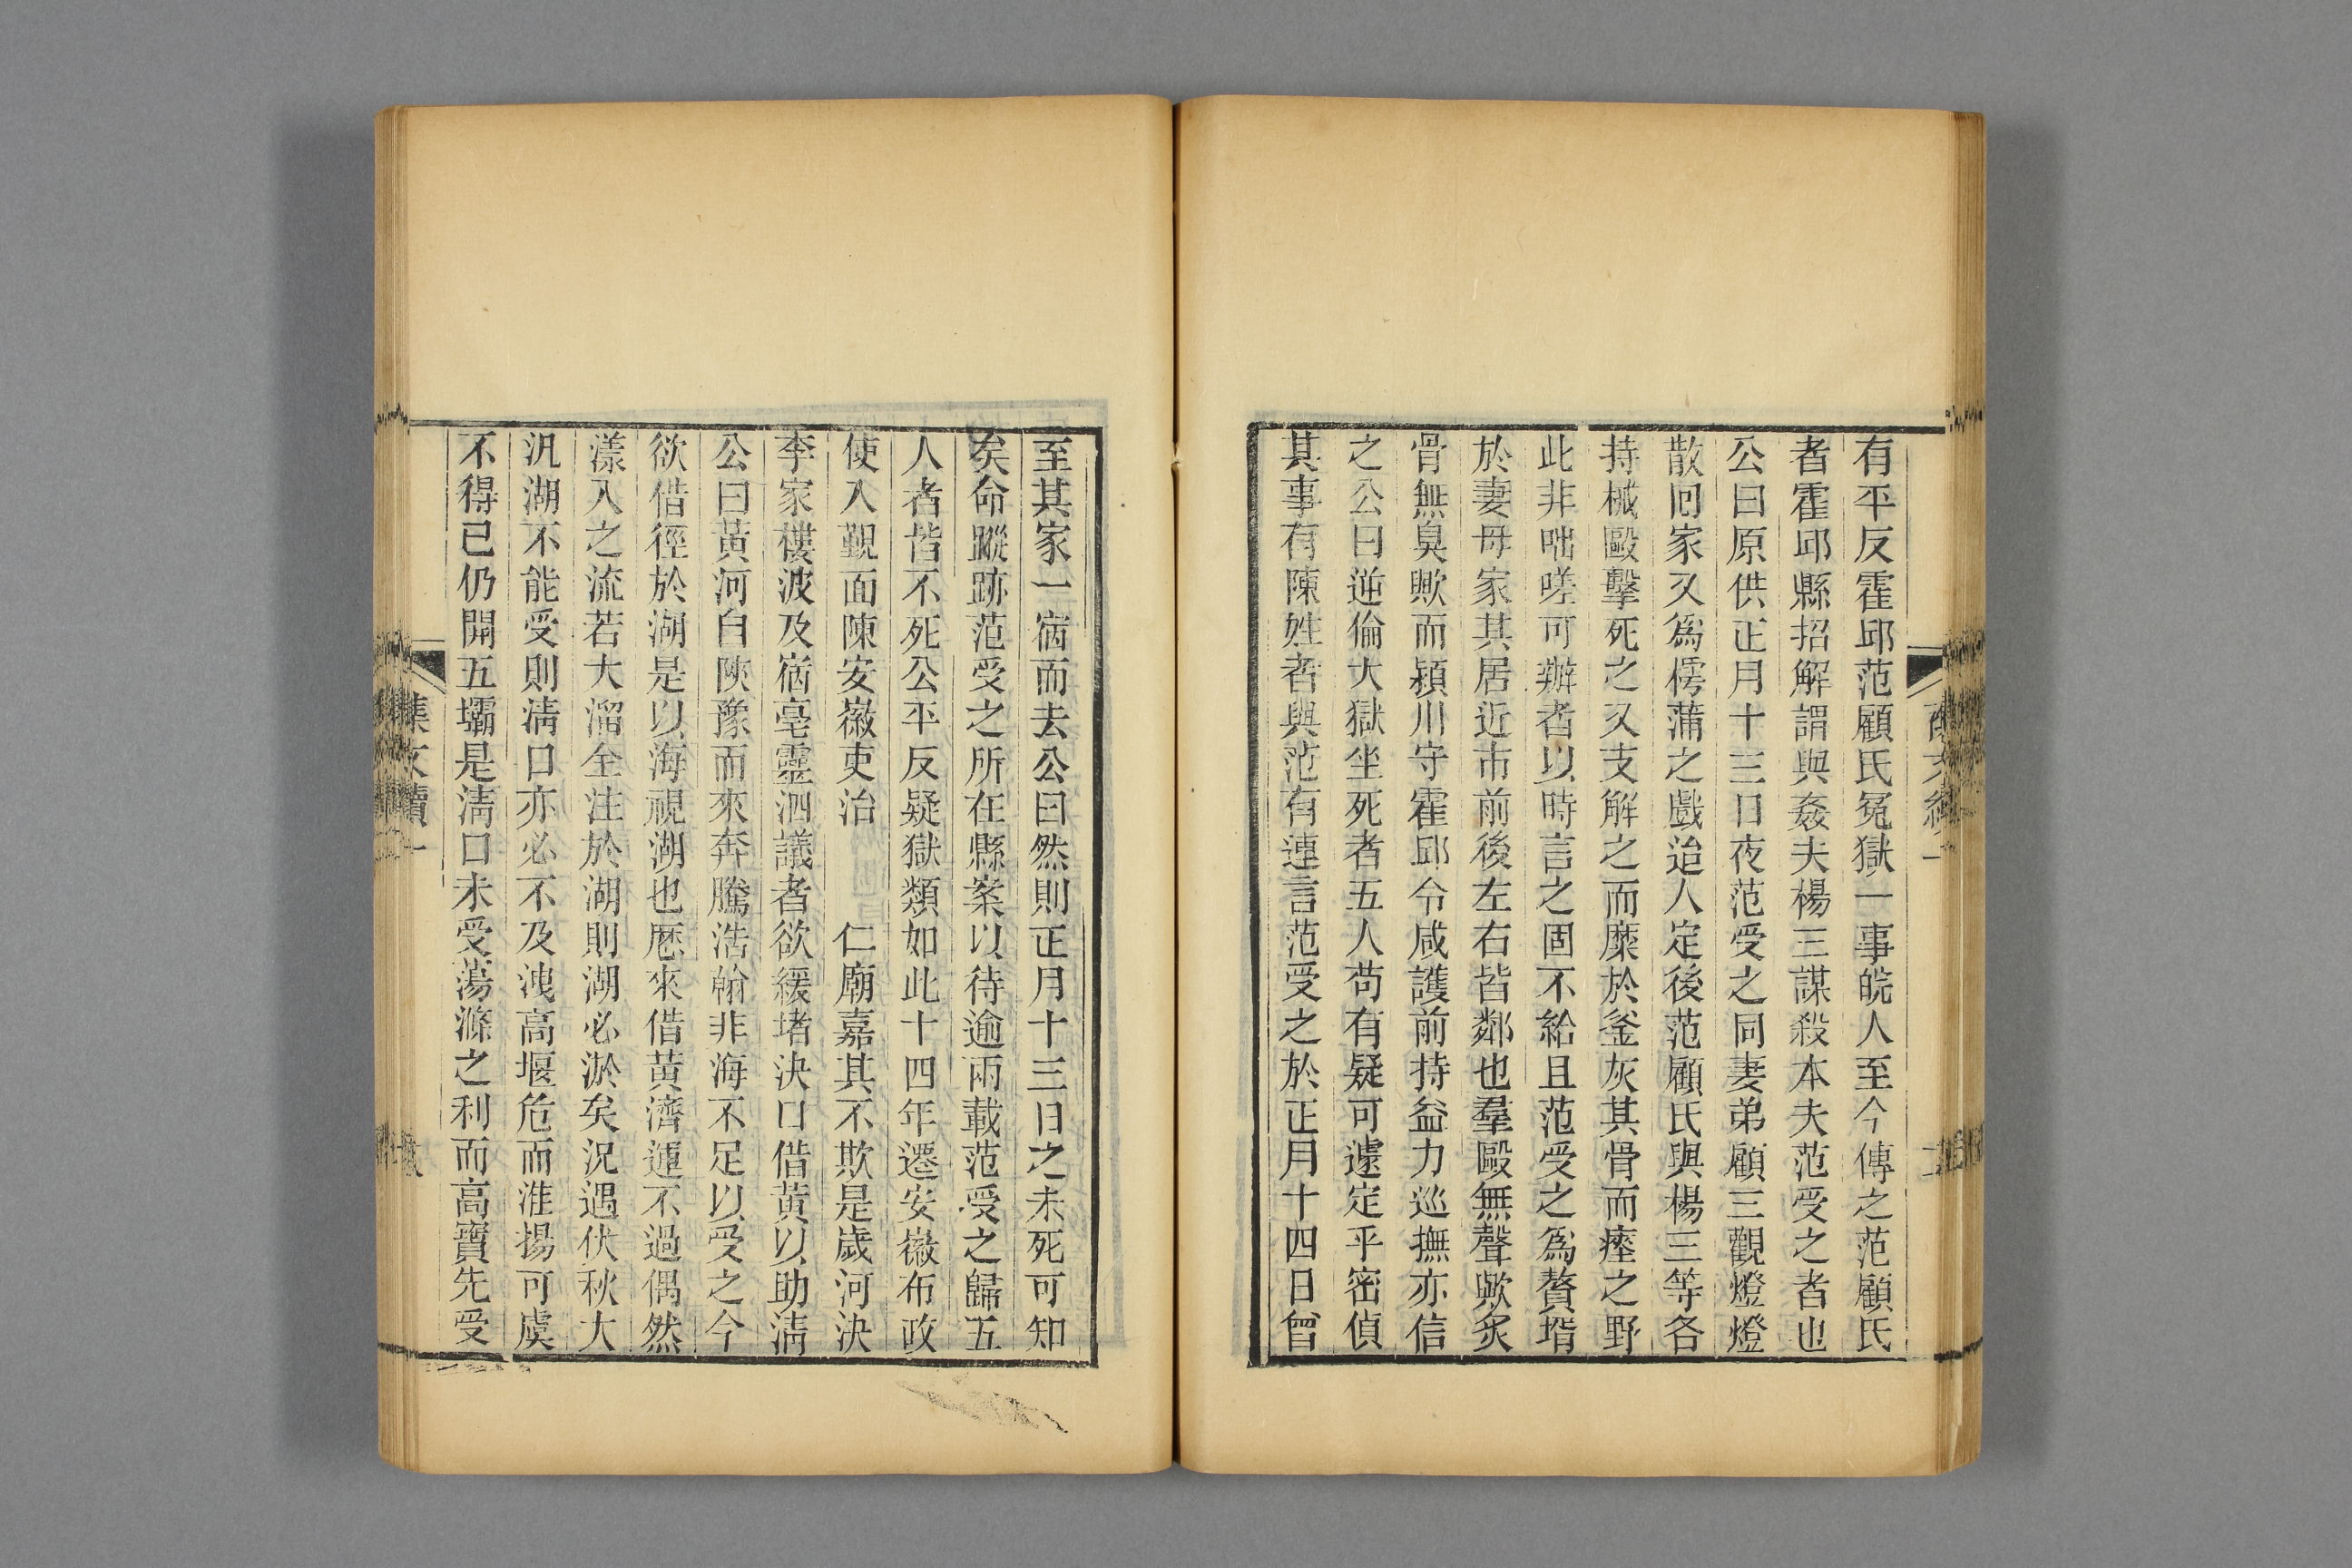 有平反霍邱范顧氏冤獄一事皖人至今傳之范顧氏
者霍邱縣招解謂與姦夫楊三謀殺本夫范受之者也
公曰原供正月十三日夜范受之同妻弟顧三觀燈燈
散回家又爲樗蒲之戲迨人定後范顧氏與楊三等各
持械毆擊死之又支解之而糜於釜灰其骨而瘞之野
此非咄嗟可辦者以時言之固不給且范受之爲贅壻
於妻母家其居近市前後左右皆鄰也羣毆無聲歟炙
骨無臭歟而潁川守霍邱令咸護前持益力巡撫亦信
之公曰逆倫大獄坐死者五人苟有疑可遽定乎密偵
其事有陳姓者與范有連言范受之於正月十四日曾
至其家一宿而去公曰然則正月十三日之未死可知
矣命蹤跡范受之所在縣案以待逾兩載范受之歸五
人者皆不死公平反疑獄類如此十四年遷安徽布政
使入覲面陳安徽吏治 仁廟嘉其不欺是歲河決
李家樓波及宿亳靈泗議者欲緩堵決口借黃以助淸
公曰黃河自陝豫而來奔騰浩翰非海不足以受之今
欲借徑於湖是以海視湖也厯來借黃濟運不過偶然
漾入之流若大溜全注於湖則湖必淤矣況遇伏秋大
汛湖不能受則淸口亦必不及洩高堰危而淮揚可虞
不得已仍開五壩是淸口未受蕩滌之利而高寶先受